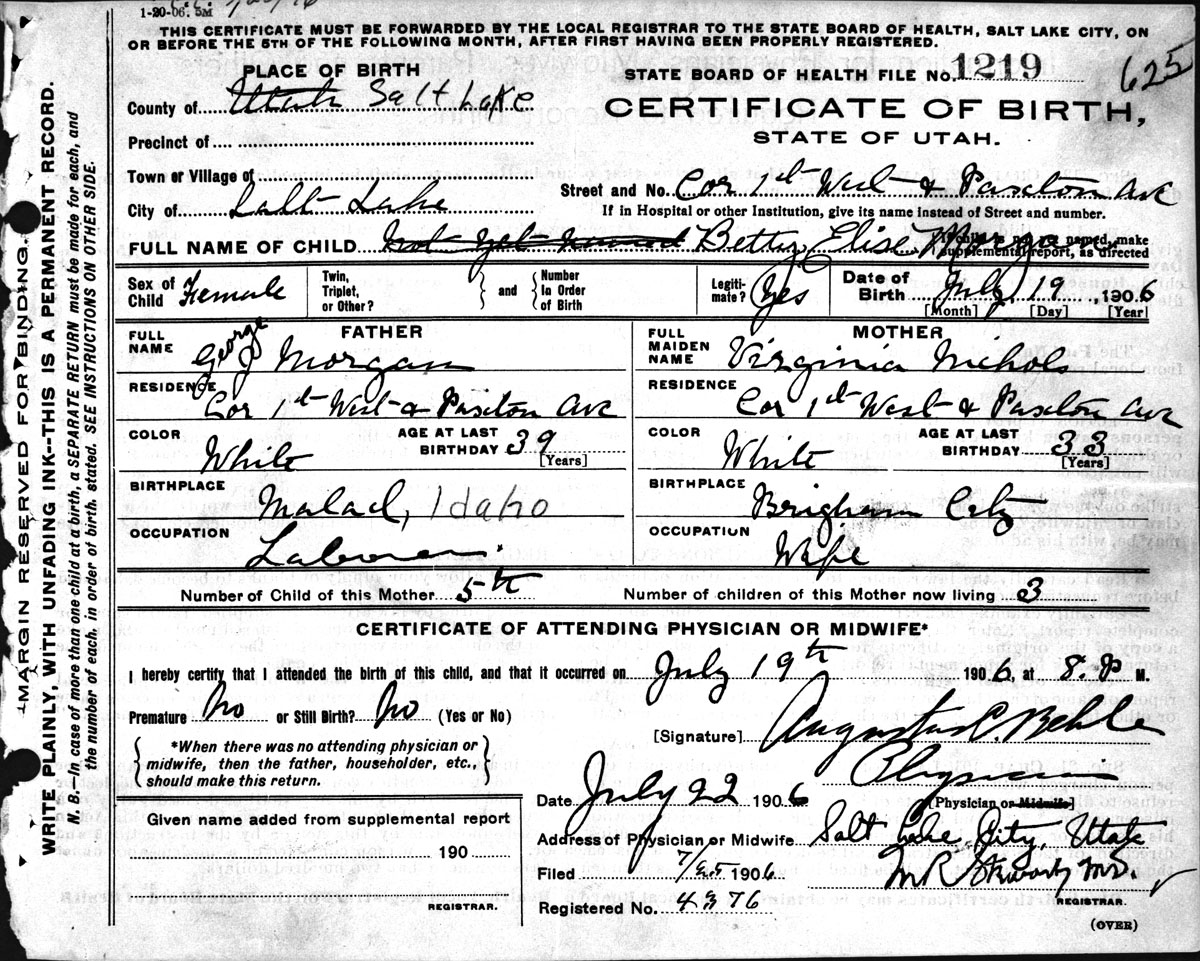 1-20-06. 5M
THIS CERTIFICATE MUST BE FORWARDED BY THE LOCAL REGISTRAR TO THE STATE BOARD OF HEALTH, SALT LAKE CITY, ON
OR BEFORE THE 5TH OF THE FOLLOWING MONTH, AFTER FIRST HAVING BEEN PROPERLY REGISTERED.
PLACE OF BIRTH
STATE BOARD OF HEALTH FILE No. 1219 625
County of Utah Salt Lake
CERTIFICATE OF BIRTH,
STATE OF UTAH.
Precinct of
Town or Village of
Street and No. Cor 1st West & Paxton Ave
City of Salt Lake
If in Hospital or other Institution, give its name instead of Street and number.
FULL NAME OF CHILD Not yet named Betty Elise Morgan
named, make
supplemental report, as directed
Sex of Child Female
Twin, Triplet, or Other?
and
Number In Order of Birth
Legiti-mate? Yes
Date of Birth July 19, 1906
[Month] [Day] [Year]
FATHER
FULL NAME George J Morgan
RESIDENCE Cor 1st West & Paxton Ave
COLOR White
AGE AT LAST BIRTHDAY 39 [Years]
BIRTHPLACE Malad, Idaho
OCCUPATION Laborer
MOTHER
FULL MAIDEN NAME Virginia Nichols
RESIDENCE Cor 1st West & Paxton Ave
COLOR White
AGE AT LAST BIRTHDAY 33 [Years]
BIRTHPLACE Brigham City
OCCUPATION Wife
Number of Child of this Mother 5th
Number of children of this Mother now living 3
CERTIFICATE OF ATTENDING PHYSICIAN OR MIDWIFE*
I hereby certify that I attended the birth of this child, and that it occurred on July 19th 1906, at 8. P M.
Premature No or Still Birth? No (Yes or No)
*When there was no attending physician or
midwife, then the father, householder, etc.,
should make this return.
[Signature] Augustus C. Behle
Physician
[Physician or Midwife]
Date July 22 1906
Given name added from supplemental report
190
REGISTRAR.
Address of Physician or Midwife Salt Lake City, Utah
Filed 7/25 1906
M.D.
REGISTRAR.
Registered No. 4376
(OVER)
MARGIN RESERVED FOR BINDING.
WRITE PLAINLY, WITH UNFADING INK--THIS IS A PERMANENT RECORD.
N. B.—In case of more than one child at a birth, a SEPARATE RETURN must be made for each, and
the number of each, in order of birth, stated. SEE INSTRUCTIONS ON OTHER SIDE.